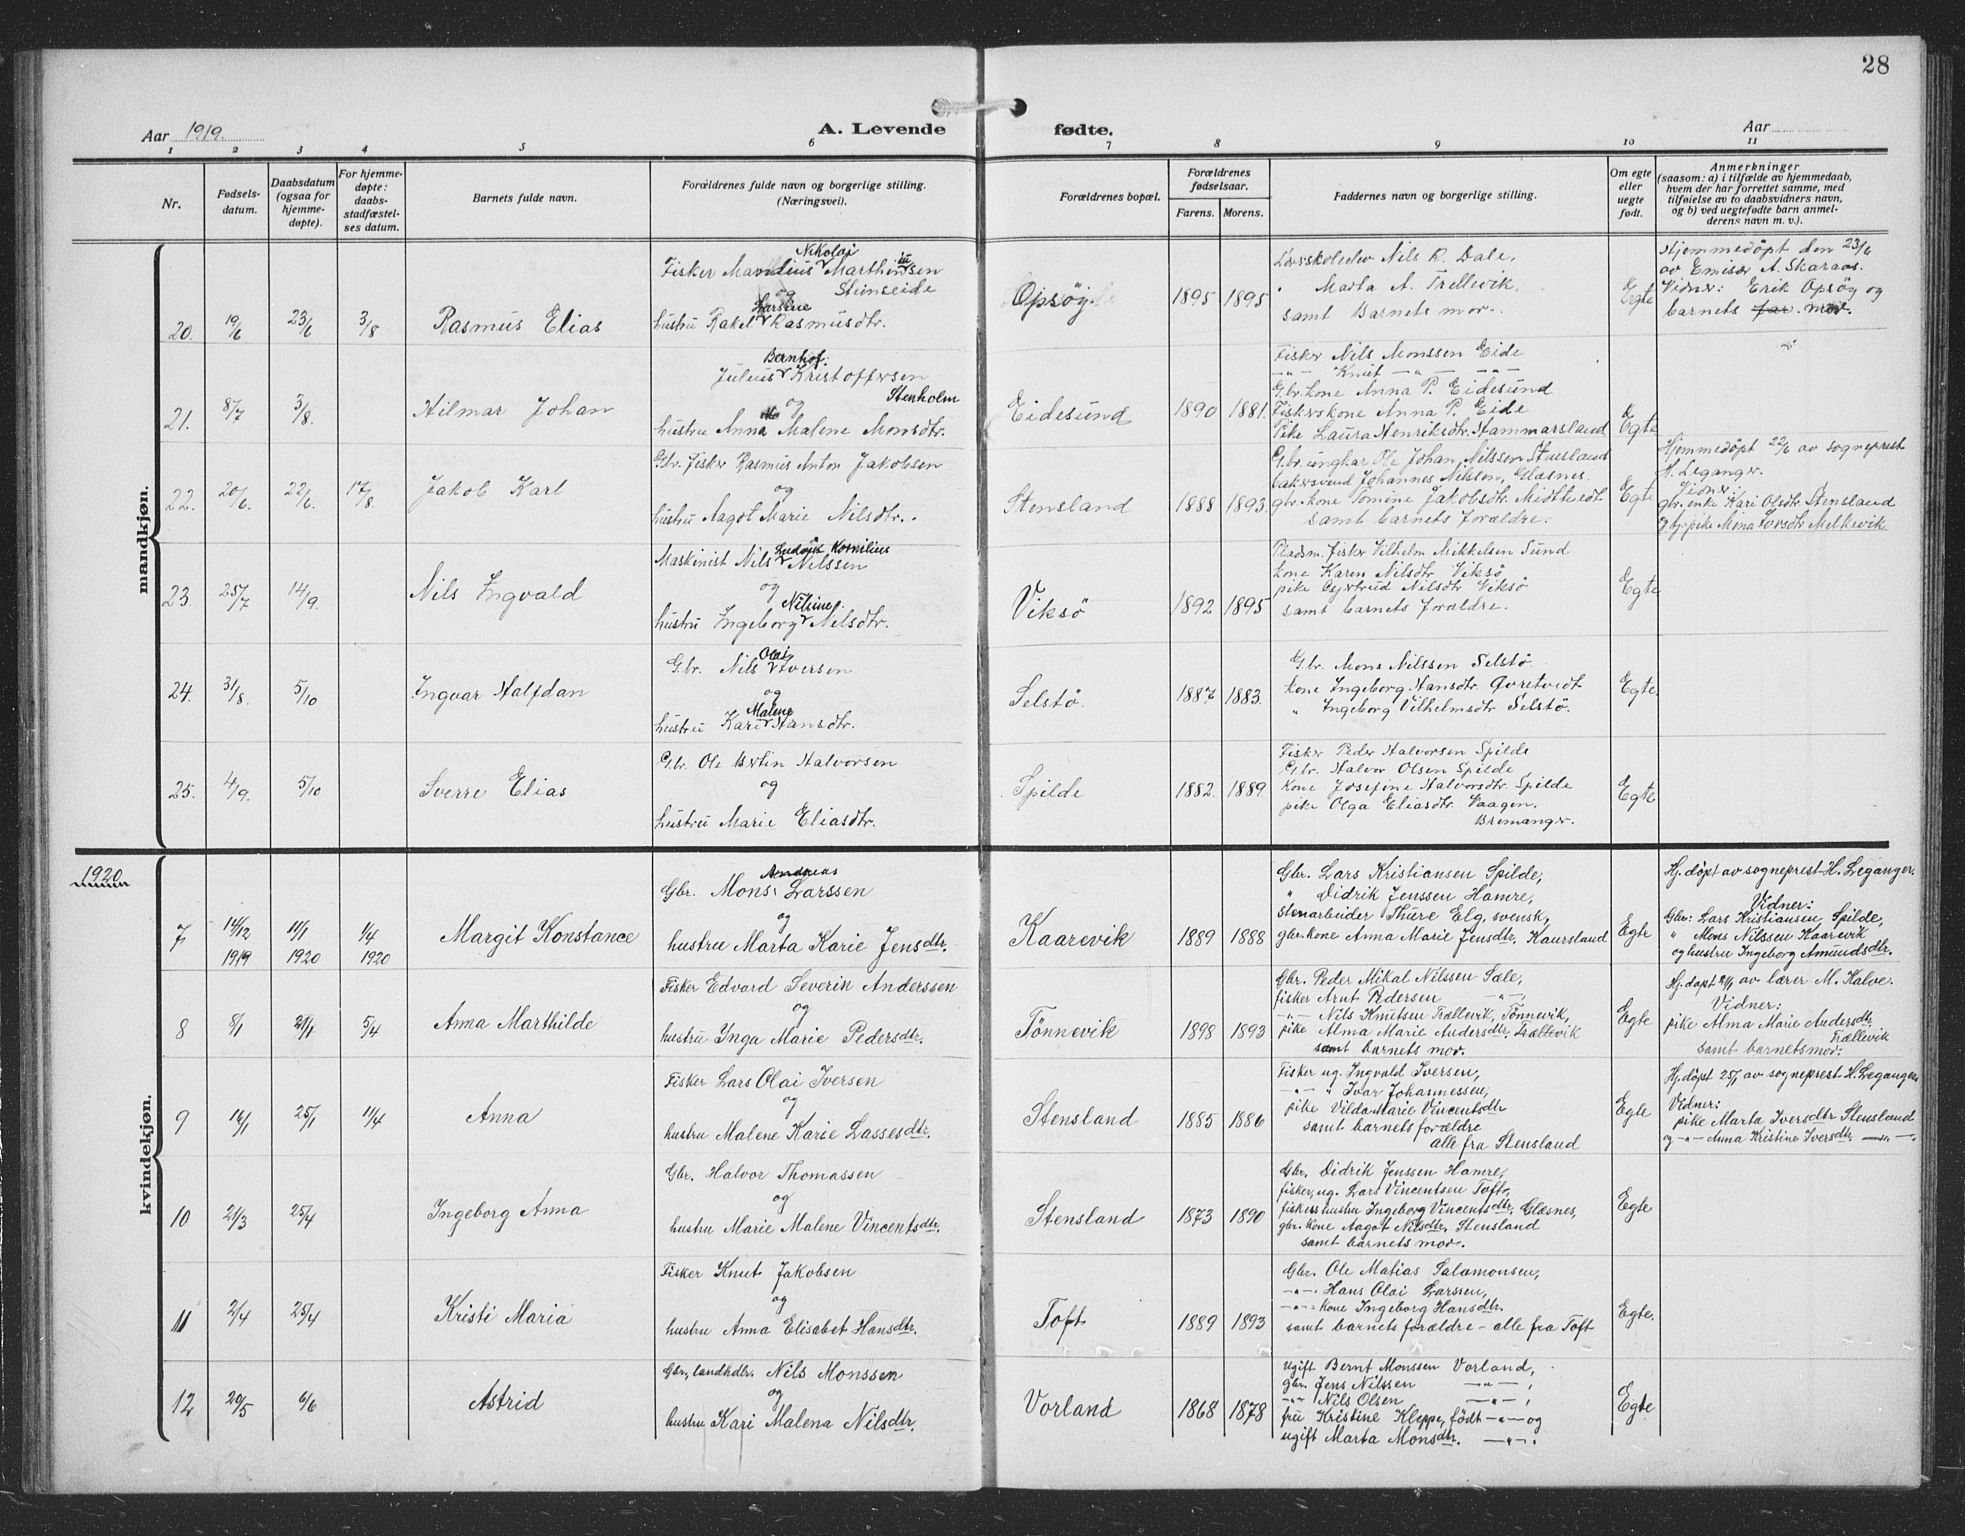 28
Aar 1919.
A. Levende fødte.
Aar
1 2 3 4 5 6 7 8 9 10 11
Nr.
Fødsels-
datum.
Daabsdatum
(ogsaa for
hjemme-
døpte).
For hjemme-
døpte:
daabs-
stadfæstel-
ses datum.
Barnets fulde navn.
Forældrenes fulde navn og borgerlige stilling.
(Næringsvei).
Forældrenes bopæl.
Forældrenes
fødselsaar.
Farens. Morens.
Faddernes navn og borgerlige stilling.
Om egte
eller
uegte
født.
Anmerkninger
(saasom: a) i tilfælde av hjemmedaab,
hvem der har forrettet samme, med
tilføielse av to daabsvidners navn,
og b) ved uegtefødte barn anmel-
derens navn m. v.).
mandkjøn.
20. 19/6 23/6 3/8 Rasmus Elias
Nikolai
Fisker Mandius Marthinsen
og Steinseide
Larsine
hustru Rakel Rasmusdtr.
Opsøy
1895 1895
Nils R. Dale,
" Marta A. Trellevik,
samt Barnets mor.
Egte
Hjemmedöpt den 23/6
av Emisær A. Skaraas.
Vidner: Erik Opsöy og
barnets far. mor.
21. 8/7 3/8. Hilmar Johan
Bernhof.
Julius Kristoffersen
og Stenholm
hustru Anna Malene Monsdtr.
Eidesund
1890 1881.
Fisker Nils Monssen Eide
-"- Knut -"- -"-
Gbr. kone Anna P. Eidesund
Fiskerskone Anna P. Eide
Pike Laura Henriksdtr. Hammarsland
Egte
22. 20/6. 22/6. 17/8. Jakob Karl
Gbr. fisker Rasmus Anton Jakobsen
og
hustru Aagot Marie Nilsdtr.
Stensland
1888 1893.
Gbr. ungkar Ole Johan Nilssen Stensland
bakersvend Johannes Nilsen, Glasnes.
gbr. kone Tomine Jakobsdtr. Midttvedt
samt barnets forældre.
Egte
Hjemmedöpt 22/6 av sogneprest
H. Leganger.
Vidner:
gbr. enke Kari Olsdtr. Stensland
og pike Mina Iversdtr Melkevik
23. 25/7 14/9. Nils Ingvald
Ludvik Kornilius
Maskinist Nils Nilssen
og
Nilsine.
hustru Ingeborg Nilsdtr.
Viksö
1892 1895
Pladsm. fisker Vilhelm Mikkelsen Sund
kone Karen Nilsdtr Viksö
pike Gjertrud Nilsdtr Viksö
samt barnets forældre.
Egte
24. 31/8. 5/10 Ingvar Halfdan
Olai
Gbr. Nils Iversen
og
Malene
hustru Kari Hansdtr.
Selstö.
1887 1883.
Gbr. Mons Nilssen Selstö.
kone Ingeborg Hansdtr Øvretvedt
" Ingeborg Vilhelmsdtr Selstö.
Egte
25. 4/9. 5/10 Sverre Elias
Gbr. Ole Bertin Halvorsen
og
hustru Marie Eliasdtr.
Spilde
1882. 1889
Fisker Peder Halvorsen Spilde
Gbr. Halvor Olsen Spilde
Kone Josefine Halvorsdtr Spilde
pike Olga Eliasdtr Vaagen.
Bremanger.
Egte
1920
kvindekjøn.
7 14/12 1919 11/1 1920 1/4 1920 Margit Konstance
Andreas
Gbr. Mons Larssen
og
hustru Marta Karie Jensdtr.
Kaarevik
1889 1888
Gbr. Lars Kristiansen Spilde,
" Didrik Jenssen Hamre,
stenarbeider Thure Elg, svensk,
gbr. kone Anna Marie Jensdtr. Kaursland
Egte
Hj. döpt av sogneprest H. Leganger.
Vidner:
Gbr: Lars Kristiansen Spilde,
" Mons Nilssen Kaarevik
og hustru Ingeborg Amundsdtr.
8 8/1 21/1 5/4 Anna Marthilde
Fisker Edvard Severin Anderssen
og
hustru Inga Marie Pedersdtr.
Tönnevik
1898 1893
Gbr. Peder Mikal Nilssen Sæle,
fisker Arnt Pedersen -"-,
-"- Nils Knutsen Trællevik, Tönnevik,
pike Alma Marie Andersdtr. Trællevik
samt barnets mor.
Egte
Hj. döpt 21/1 av lærer M. Kalve.
Vidner:
pike Alma Marie Andersdtr.
Trællevik
samt barnets mor.
9 16/1 25/1 11/4 Anna
Fisker Lars Olai Iversen
og
hustru Malene Karie Lassesdtr.
Stensland
1885 1886
Fisker ug. Ingvald Iversen,
-"- " Ivar Johannessen,
pike Vilda Marie Vincentsdtr
samt barnets forældre
alle fra Stensland
Egte
Hj. döpt 25/1 av sogneprest H. Leganger
Vidner:
pike Marta Iversdtr Stensland
og -"- Anna Kristine Iversdtr -"-
10 21/3 25/4 Ingeborg Anna
Gbr. Halvor Thomassen
og
hustru Marie Malene Vincentsdtr.
Stensland
1873 1890
Gbr. Didrik Jenssen Hamre,
fisker, ug. Lars Vincentsen Toft,
fiskers hustru Ingeborg Vincentsdtr. Glæsnes,
gbr. kone Aagot Nilsdtr. Stensland
samt barnets mor.
Egte
11 2/4 25/4 Kristi Maria
Fisker Knut Jakobsen
og
hustru Anna Elisabet Hansdtr.
Toft
1889 1893
Gbr. Ole Matias Salamonsen,
-"- Hans Olai Larssen,
-"- kone Ingeborg Hansdtr.
samt barnets forældre - alle fra Toft
Egte.
12 20/5 6/6 Astrid
Gbr., landhdlr. Nils Monssen
og
hustru Kari Malena Nilsdtr.
Vorland
1868 1878
ugift Bernt Monssen Vorland,
gbr. Jens Nilssen -"-,
-"- Nils Olsen -"-,
fru Kristine Kleppe, födt -"- og
ugift Marta Monsdtr. -"-.
Egte